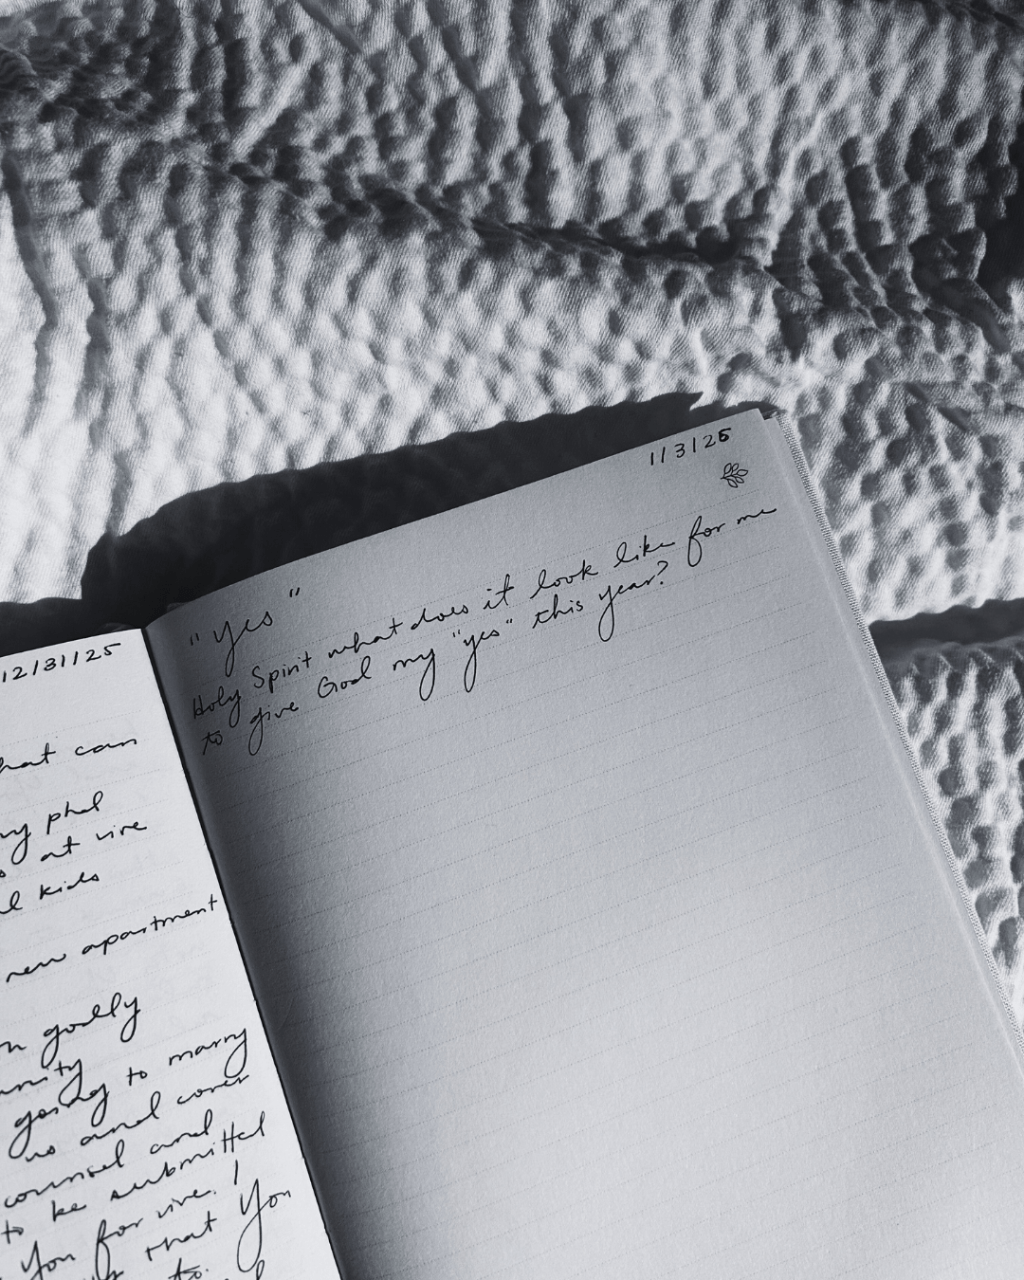 12/31/25
can
phd
at vive
kids
new apartment
godly
going to marry
us and cover
counsel and
to be submitted
You for vive. I
that You
to.
1/3/26
"yes"
Holy Spirit what does it look like for me
to give God my "yes" this year?